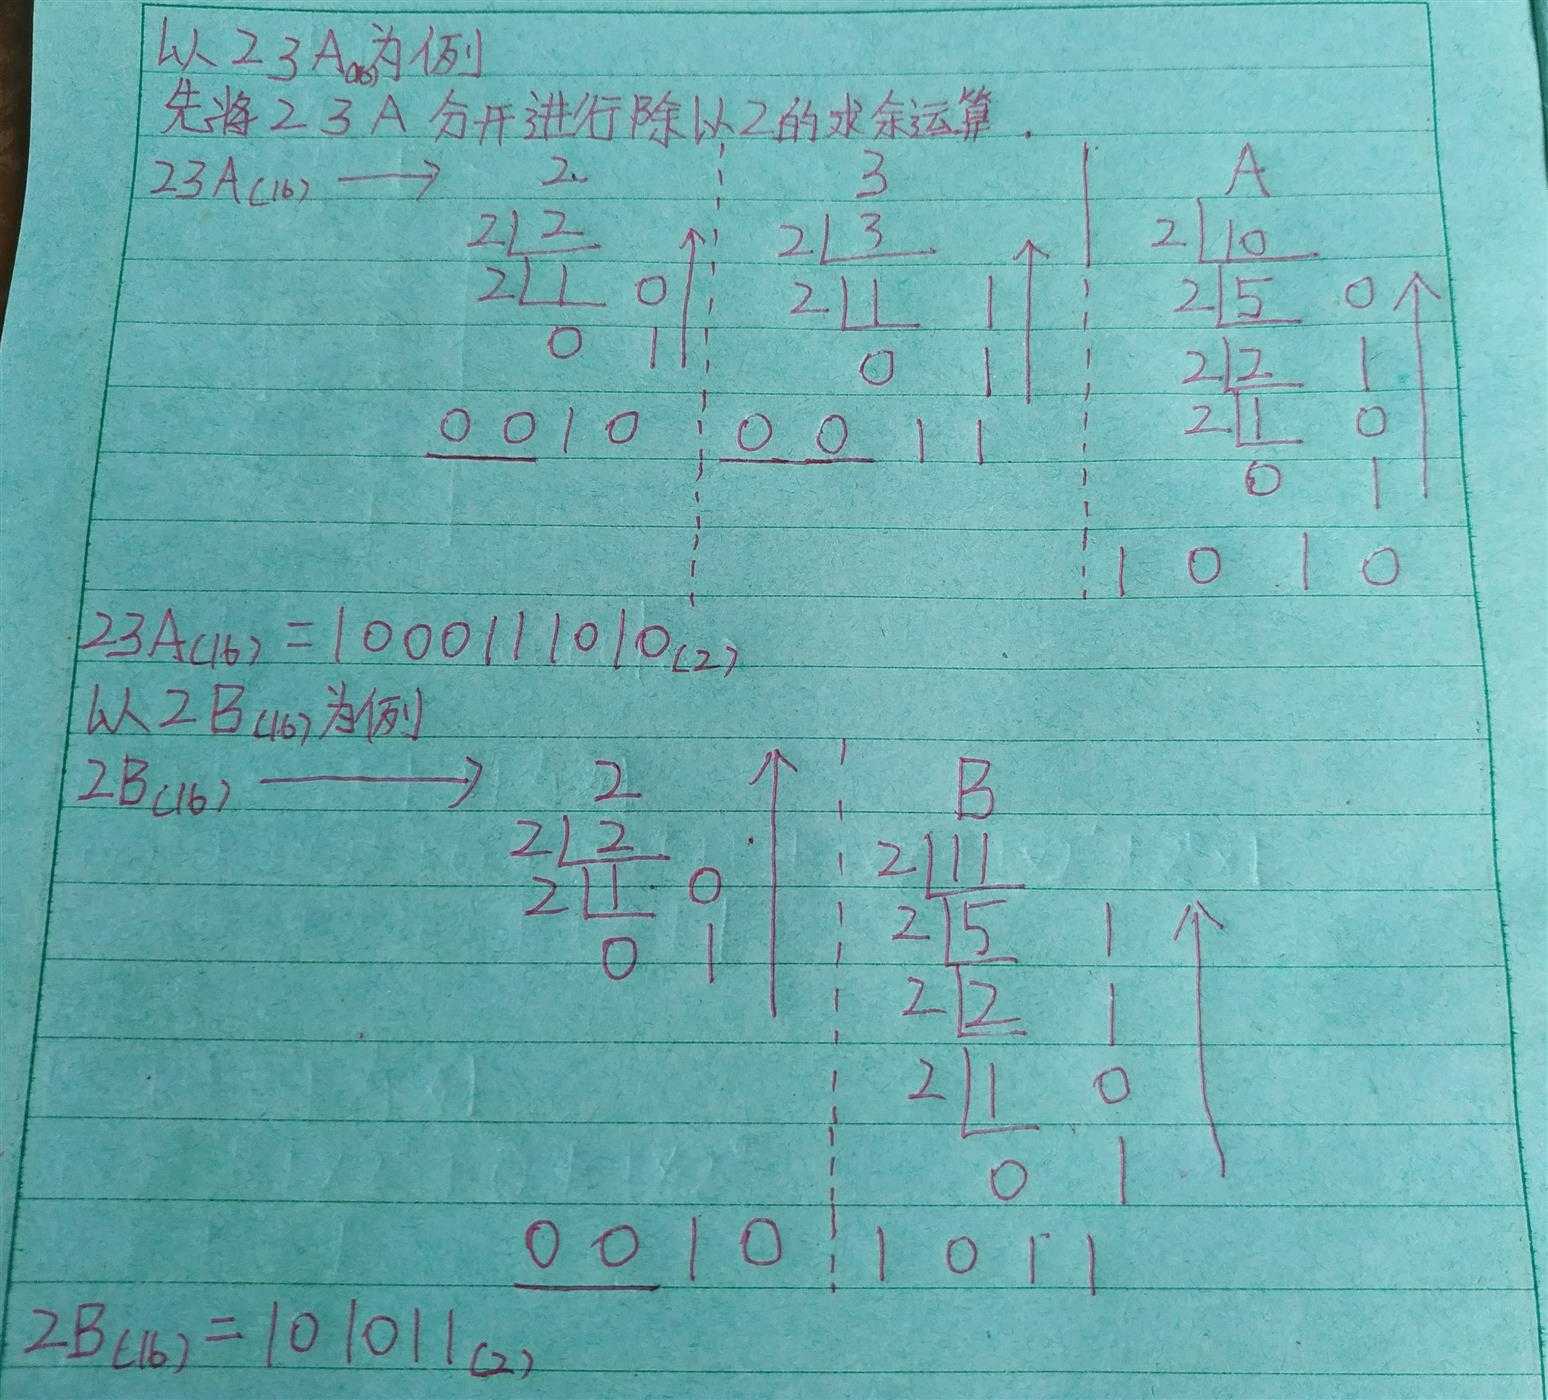 以23A(16)为例
先将23A分开进行除以2的求余运算.
23A(16) → 2 3 A
2 2 2 3 2 10
2 1 0 2 1 1 2 5 0
0 1 0 1 2 2 1
0010 0011 2 1 0
0 1
1010
23A(16)=1000111010(2)
以2B(16)为例
2B(16) → 2 B
2 2 2 11
2 1 0 2 5 1
0 1 2 2 1
2 1 0
0 1
0010 1011
2B(16)=101011(2)